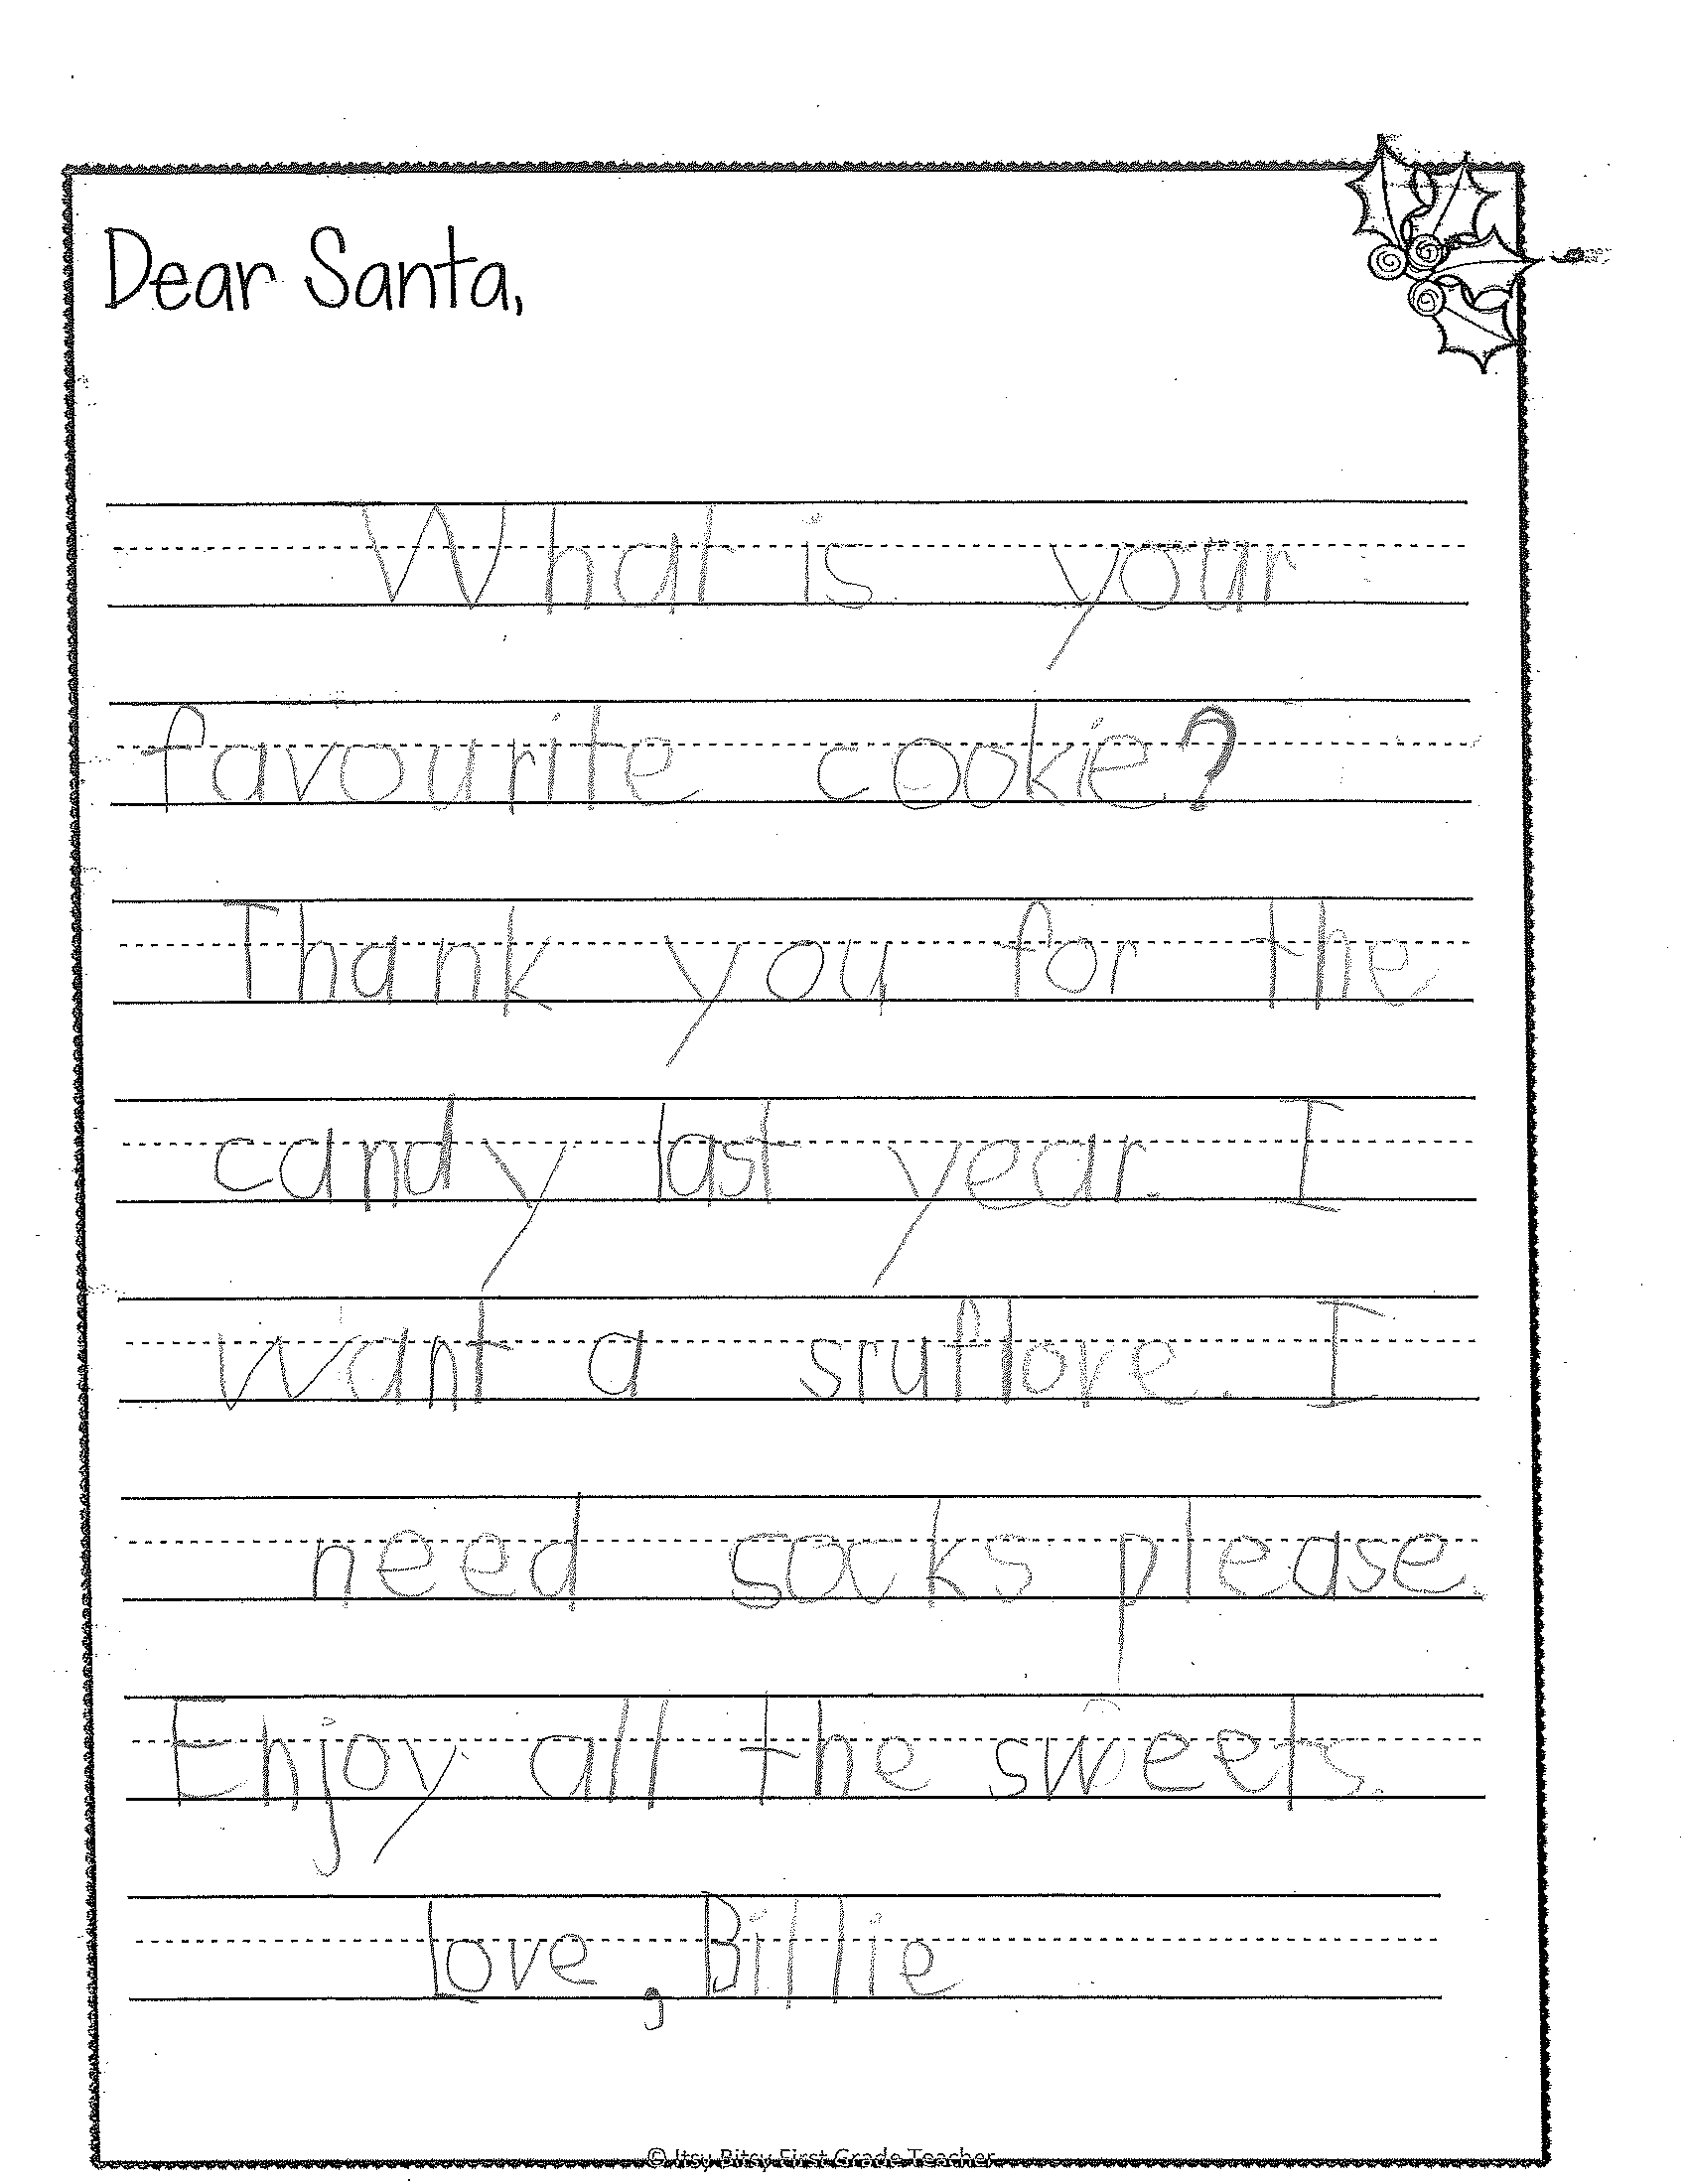 Dear Santa,
What is your
favourite cookie?
Thank you for the
candy last year. I
want a sruflore. I
need socks please.
Enjoy all the sweets.
Love, Billie
© Itsy Bitsy First Grade Teacher